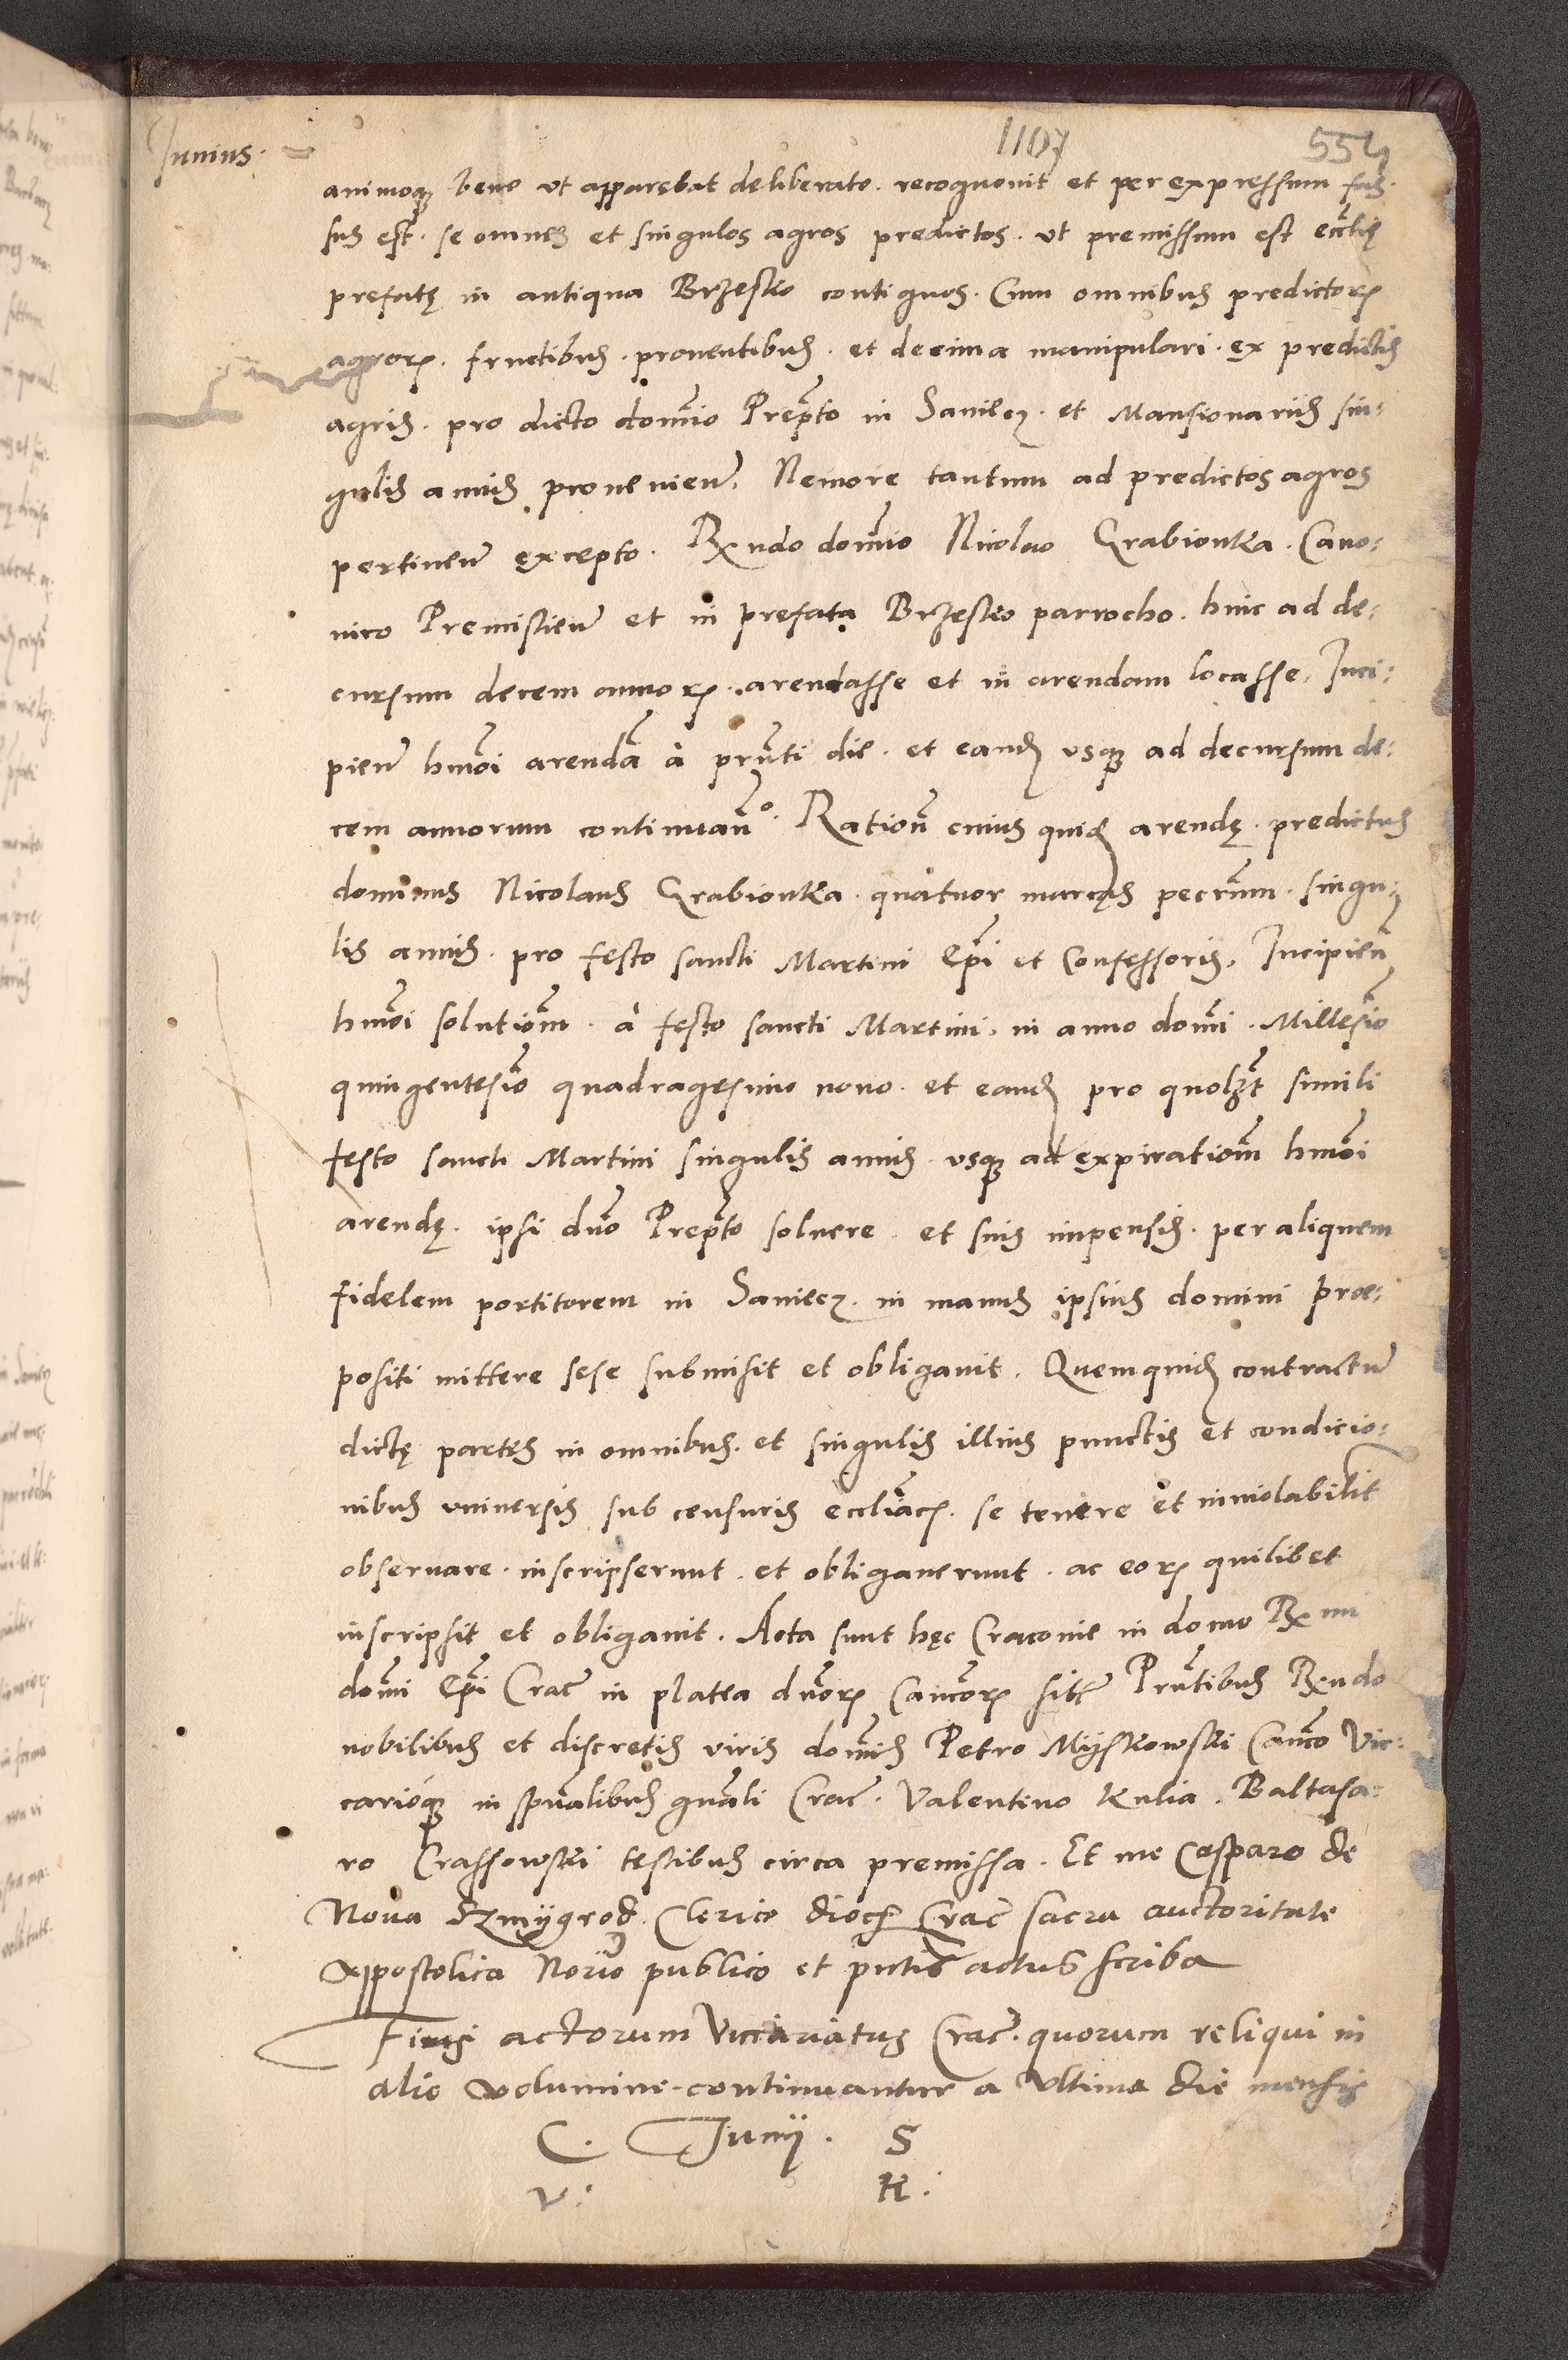 Junius.
1107
554
animoq3 bene ut apparebat deliberato. recognovit et per expressum fas-
sus est. se omnes et singulos agros predictos. ut premissum est eccłię
prefatę in antiqua Brzesko contiguos. Cum omnibus predictoꝝ
agroꝝ. fructibus. proventibus. et decima manipulari. ex predictis
agris. pro dicto domino Prepto in Sanłecz. et Mansionariis sin-
gulis annis provenien. Nemore tantum ad predictos agros
pertinen excepto. Rndo domino Nicolao Grabionka. Cano-
nico Premislien et in prefata Brzesko parrocho. hinc ad de-
cursum decem annoꝝ. arendasse et in arendam locasse, Inci-
pien hmoi arendã à prñti die. et eand usq3 ad decursum de-
cem annorum continuañº. Rationẽ cuius quid arendę. predictus
dominus Nicolaus Grabionka. quatuor marcas pecuñm. singu-
lis annis. pro festo sancti Martini Epi et Confessoris, Incipień
hmoi solutioñm. à festo sancti Martini, in anno domi. Millesio
quingentesio quadragesimo nono. et eand pro quolzt simili
festo sancti Martini singulis annis. usq3 ad expiratioñm hmoi
arendę. ipsi dno Prepto solvere. et suis impensis. per aliquem
fidelem portitorem in Sanłecz. in manus ipsius domini Prae-
positi mittere sese submisit et obligavit. Quemquid contractũ
dictę partes in omnibus. et singulis illius punctis et condicio-
nibus universis sub censuris eccliacꝝ. se tenere et inviolabilit
observare. inscripserunt. et obligaverunt. ac eoꝝ quilibet
inscripsit et obligavit. Acta sunt hęc Cracovie in domo Rmi
domi Epi Crac in platea dnoꝝ Cancoꝝ sit Prñtibus Rndo
nobilibus et discretis viris domis Petro Myskowski Canco Vic-
carioq3 in spualibus gnali Crac. Valentino Kulia. Baltasa-
ro Crassowski testibus circa premissa. Et me Casparo de
Nova Szmygrod. Clerico dioces Crac sacra auctoritate
appostolica Norio publico et pntis actus scriba
Finis actorum Viccariatus Crac. quorum reliqui in
alio volumine continuantur a ultima die mensis
C. Junij. S
V: K: